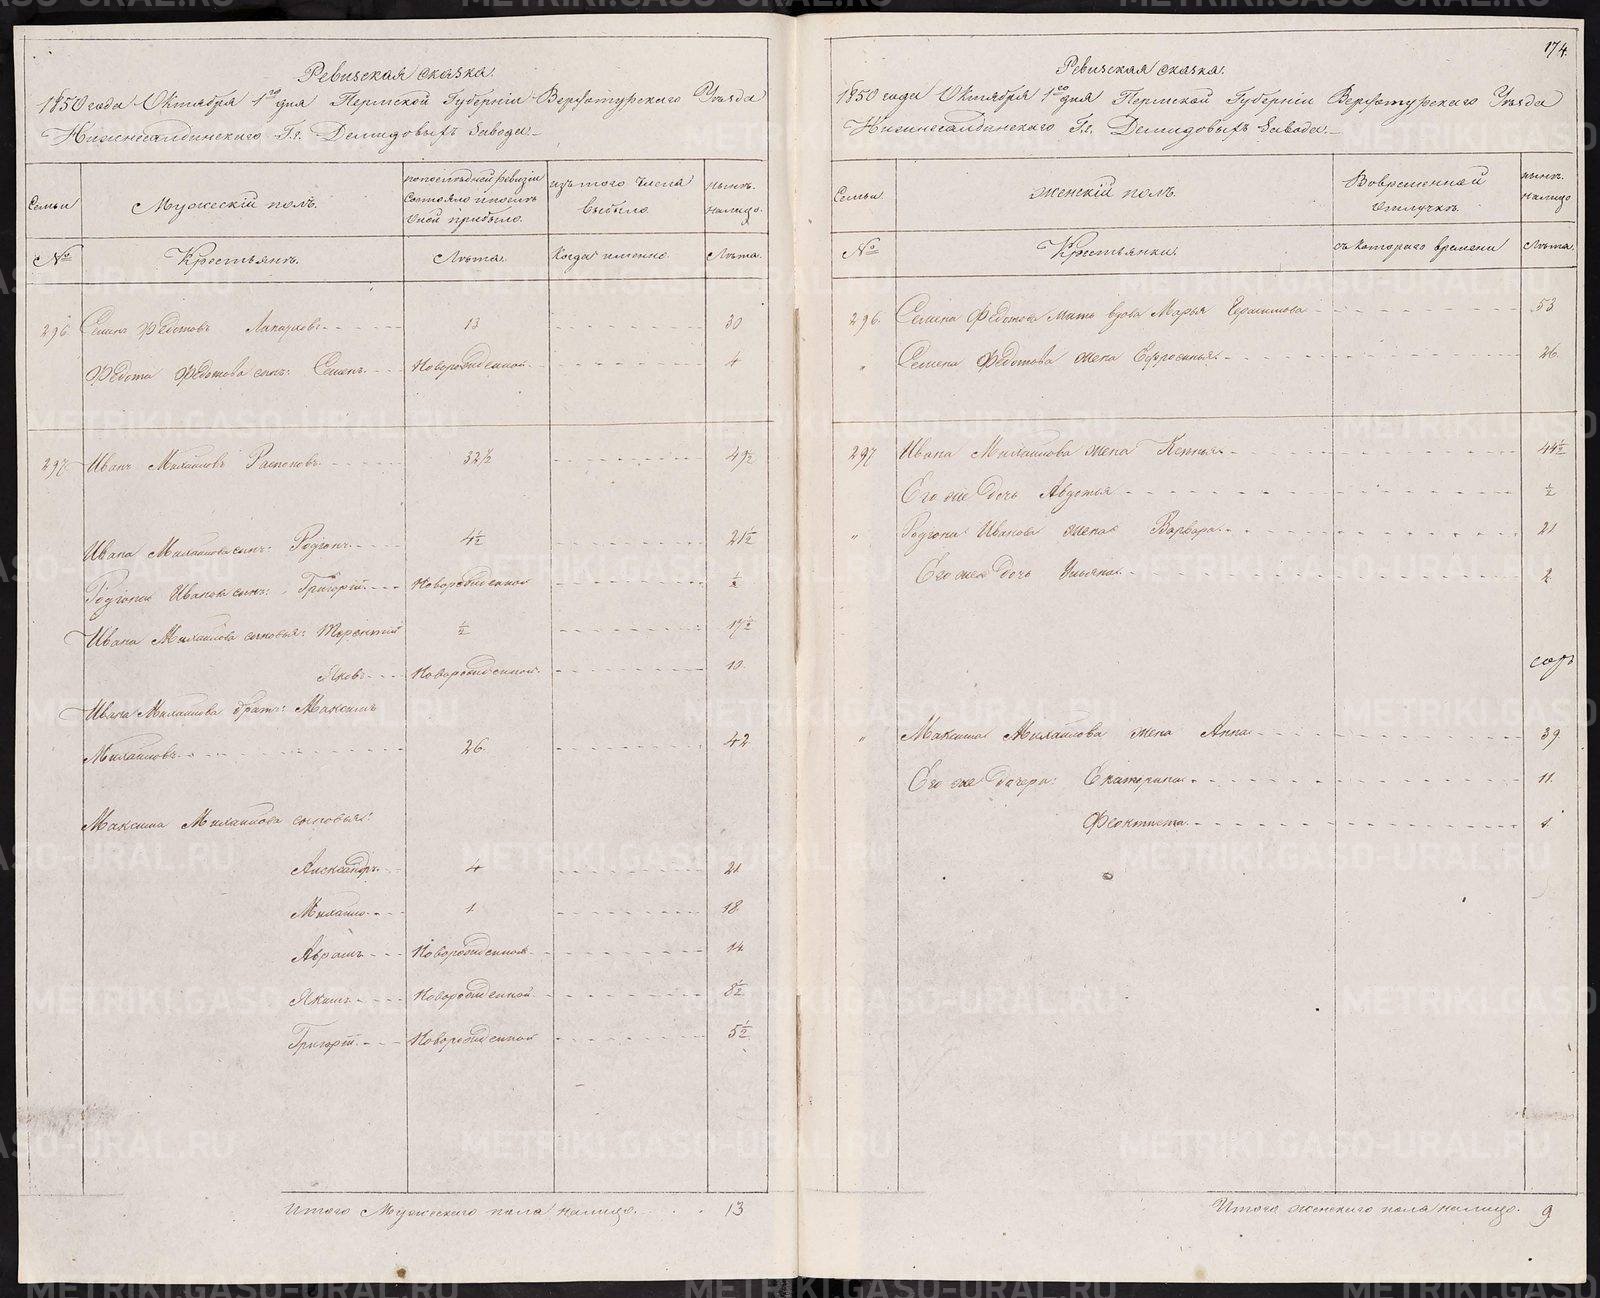 Ревизская сказка.
1850 года Октября 1го дня Пермской Губернии Верхотурскаго Уѣзда
Нижнесалдинскаго Гг. Демидовыхъ Завода.
Семьи
Мужескій полъ.
попослѣдней ревизіи состояло и послѣ оной прибыло.
изъ того числа выбыло
нынѣ налицо.
№
Крестьянъ.
Лѣта.
Когда именно.
Лѣта.
296 Семенъ Федотовъ 13 30
Федота Федотова сынъ: Семенъ Новорожденной 4
297 Иванъ Михайловъ 32½ 49½
Ивана Михайлова сынъ: Родіонъ 4½ 21½
Родіона Иванова сынъ: Григорій Новорожденной ½
Ивана Михайлова сыновья: Терентій ½ 17½
Яковъ Новорожденной 10.
Ивана Михайлова братъ: Максимъ
Михайловъ 26. 42
Максима Михайлова сыновья:
Александръ 4 21
Михайло 1. 18.
Абрамъ Новорожденной 14
Якимъ Новорожденной 8½
Григорій Новорожденной 5½
Итого Мужескаго пола налицо. 13
174
Ревизская сказка.
1850 года Октября 1го дня Пермской Губерніи Верхотурскаго Уѣзда
Нижнесалдинскаго Гг. Демидовыхъ Завода.
Семьи
Женскій полъ.
Во временной отлучкѣ.
нынѣ налицо
№
Крестьянки.
съ котораго времени
Лѣта.
296. Семена Федотова мать вдова Марья Герасимова 53
" Семена Федотова жена Ефросинья 26.
297 Ивана Михайлова жена Ксенья 44½
Его же дочь Авдотья ½
" Родіона Иванова жена Варвара 21
Его же дочь Ульяна 2.
" Максима Михайлова жена Анна 39
Его же дочери: Екатерина 11.
Феоктиста
Итого женскаго пола налицо. 9
METRIKI.GASO-URAL.RU